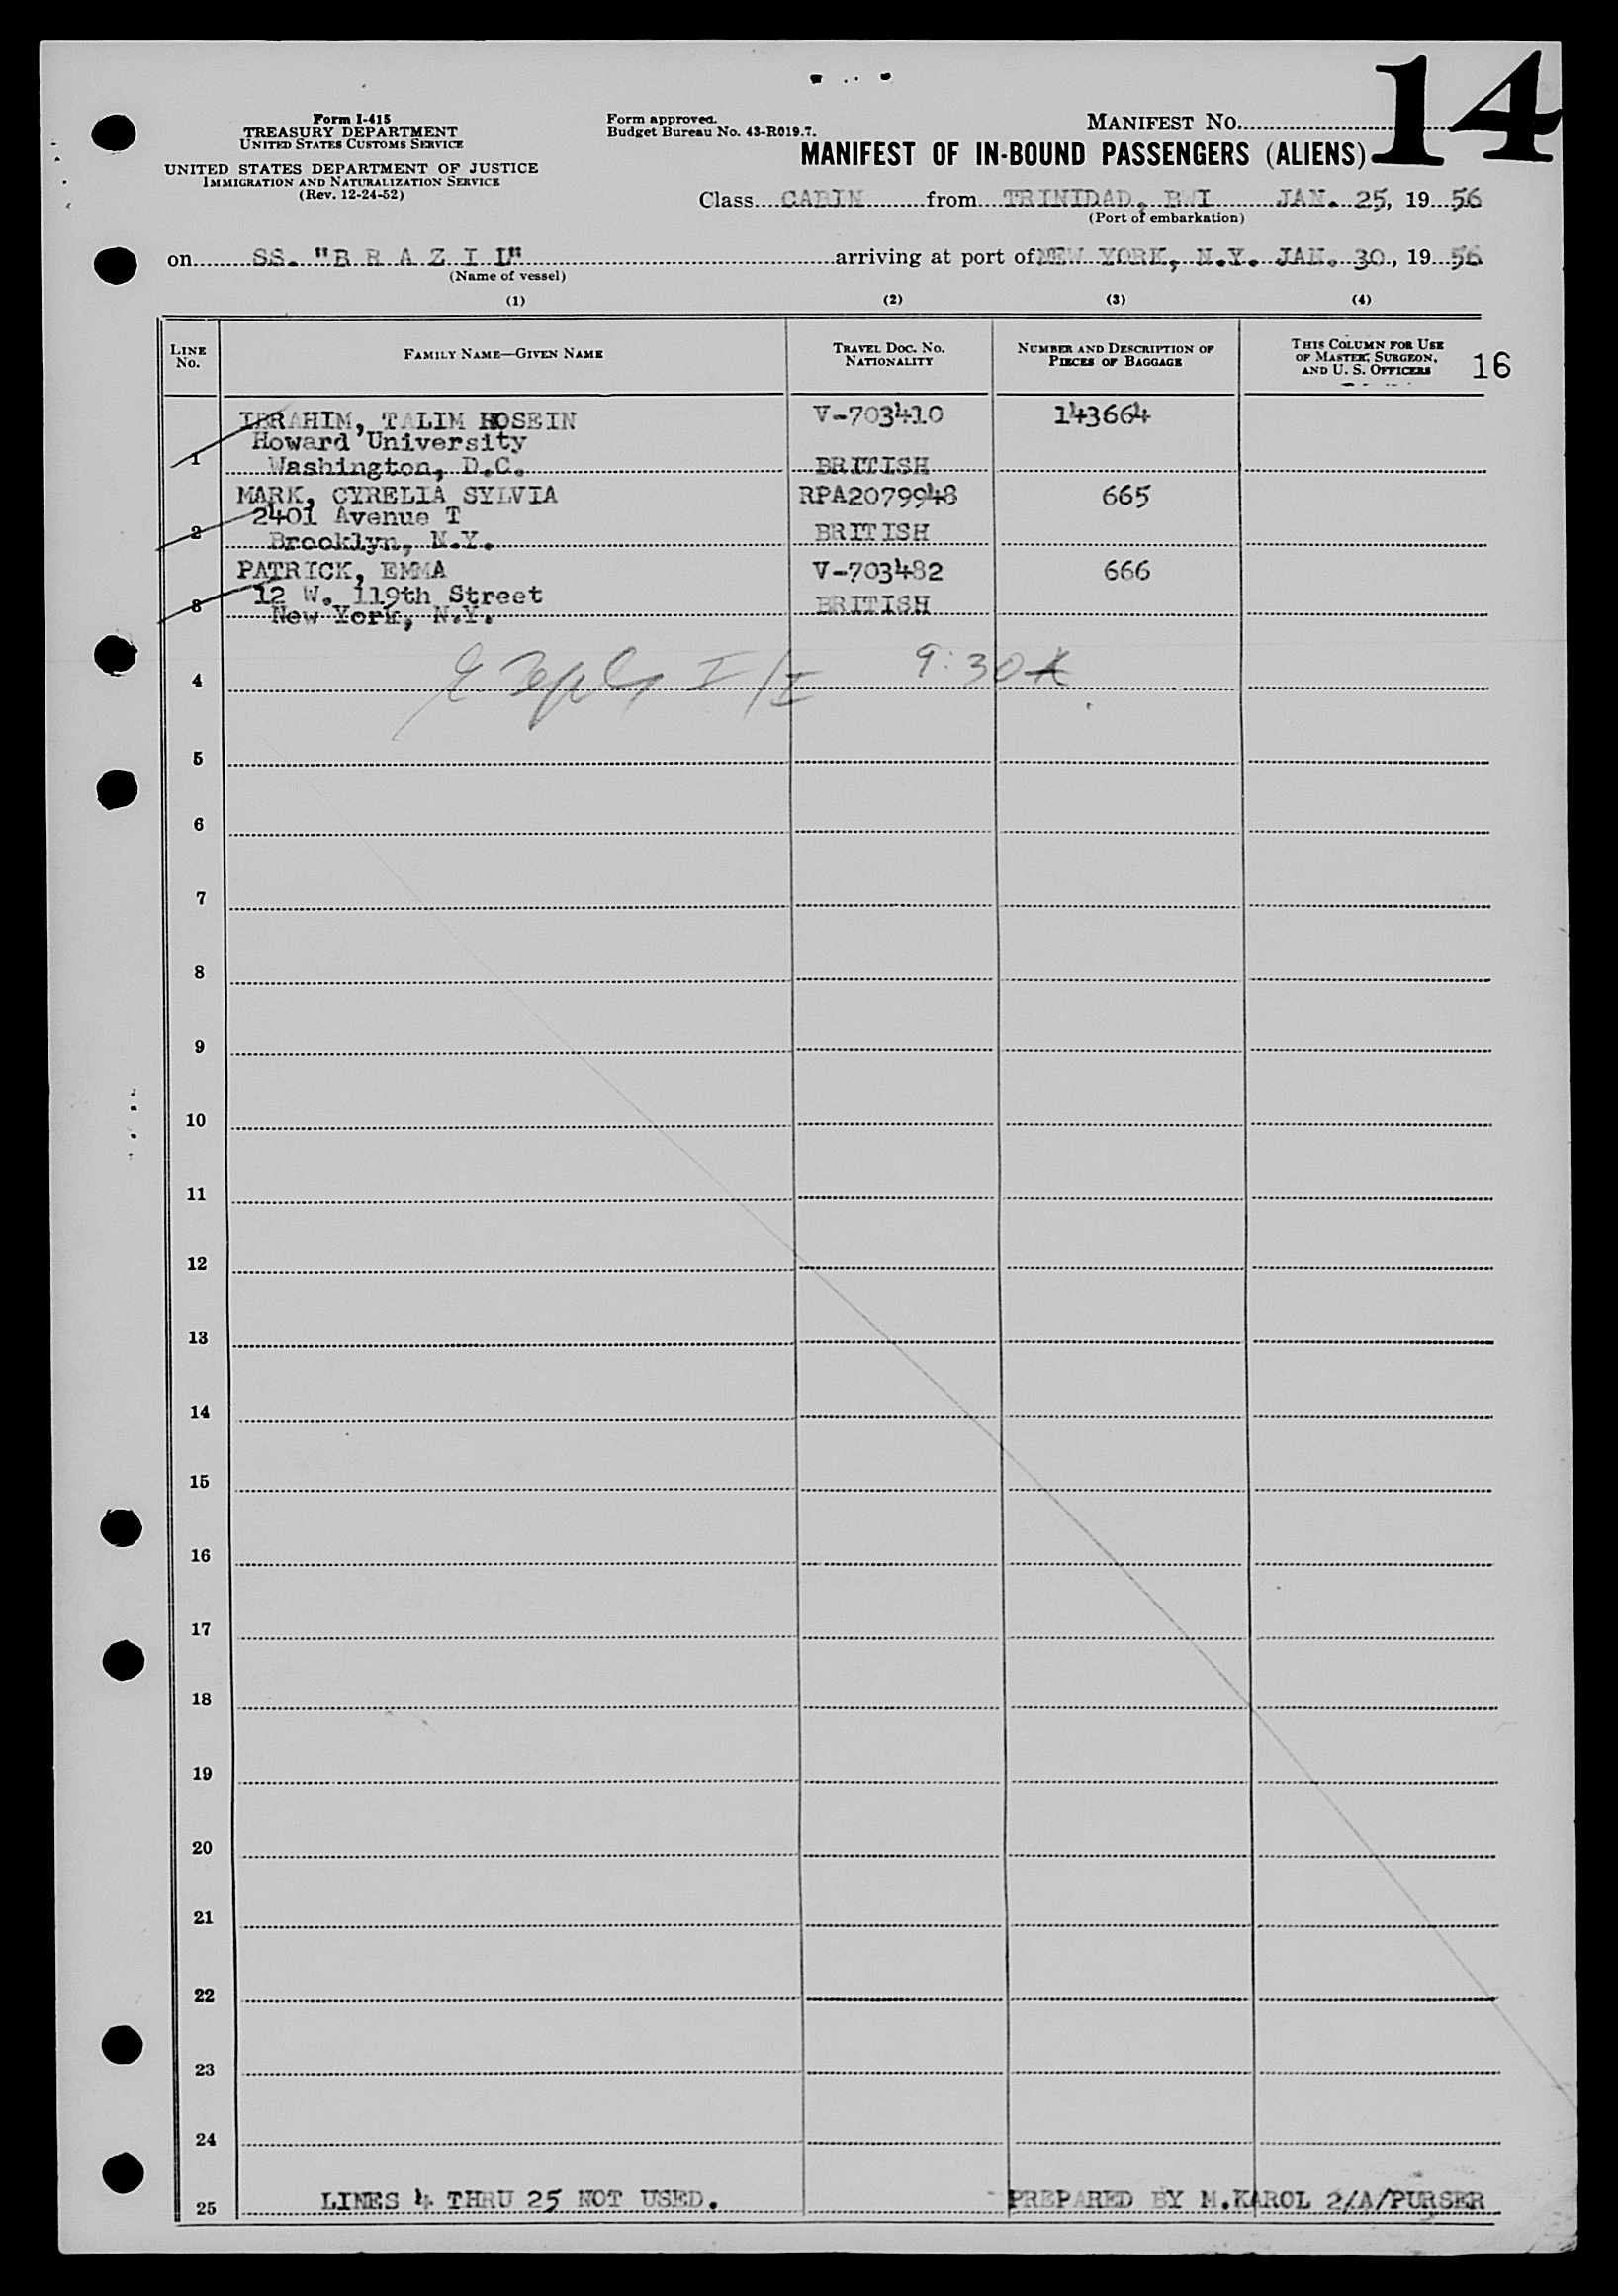 14
Form I-415
TREASURY DEPARTMENT
UNITED STATES CUSTOMS SERVICE
UNITED STATES DEPARTMENT OF JUSTICE
IMMIGRATION AND NATURALIZATION SERVICE
(Rev. 12-24-52)
Form approved.
Budget Bureau No. 43-R019.7.
MANIFEST NO.
MANIFEST OF IN-BOUND PASSENGERS (ALIENS)
Class CABIN from TRINIDAD, BWI JAN. 25, 19 56
(Port of embarkation)
on SS. "B R A Z I L" arriving at port of NEW YORK, N.Y. JAN. 30, 19 56
(Name of vessel)
(1) (2) (3) (4)
LINE NO. FAMILY NAME—GIVEN NAME TRAVEL DOC. NO. NATIONALITY NUMBER AND DESCRIPTION OF PIECES OF BAGGAGE THIS COLUMN FOR USE OF MASTER, SURGEON, AND U. S. OFFICERS 16
IBRAHIM, TALIM HOSEIN V-703410 143664
Howard University
1 Washington, D.C. BRITISH
MARK, CYRELIA SYLVIA RPA2079948 665
2401 Avenue T
2 Brooklyn, N.Y. BRITISH
PATRICK, EMMA V-703482 666
12 W. 119th Street
3 New York, N.Y. BRITISH
4 I/I 9:30
5
6
7
8
9
10
11
12
13
14
15
16
17
18
19
20
21
22
23
24
25 LINES 4 THRU 25 NOT USED. PREPARED BY M.KAROL 2/A/PURSER